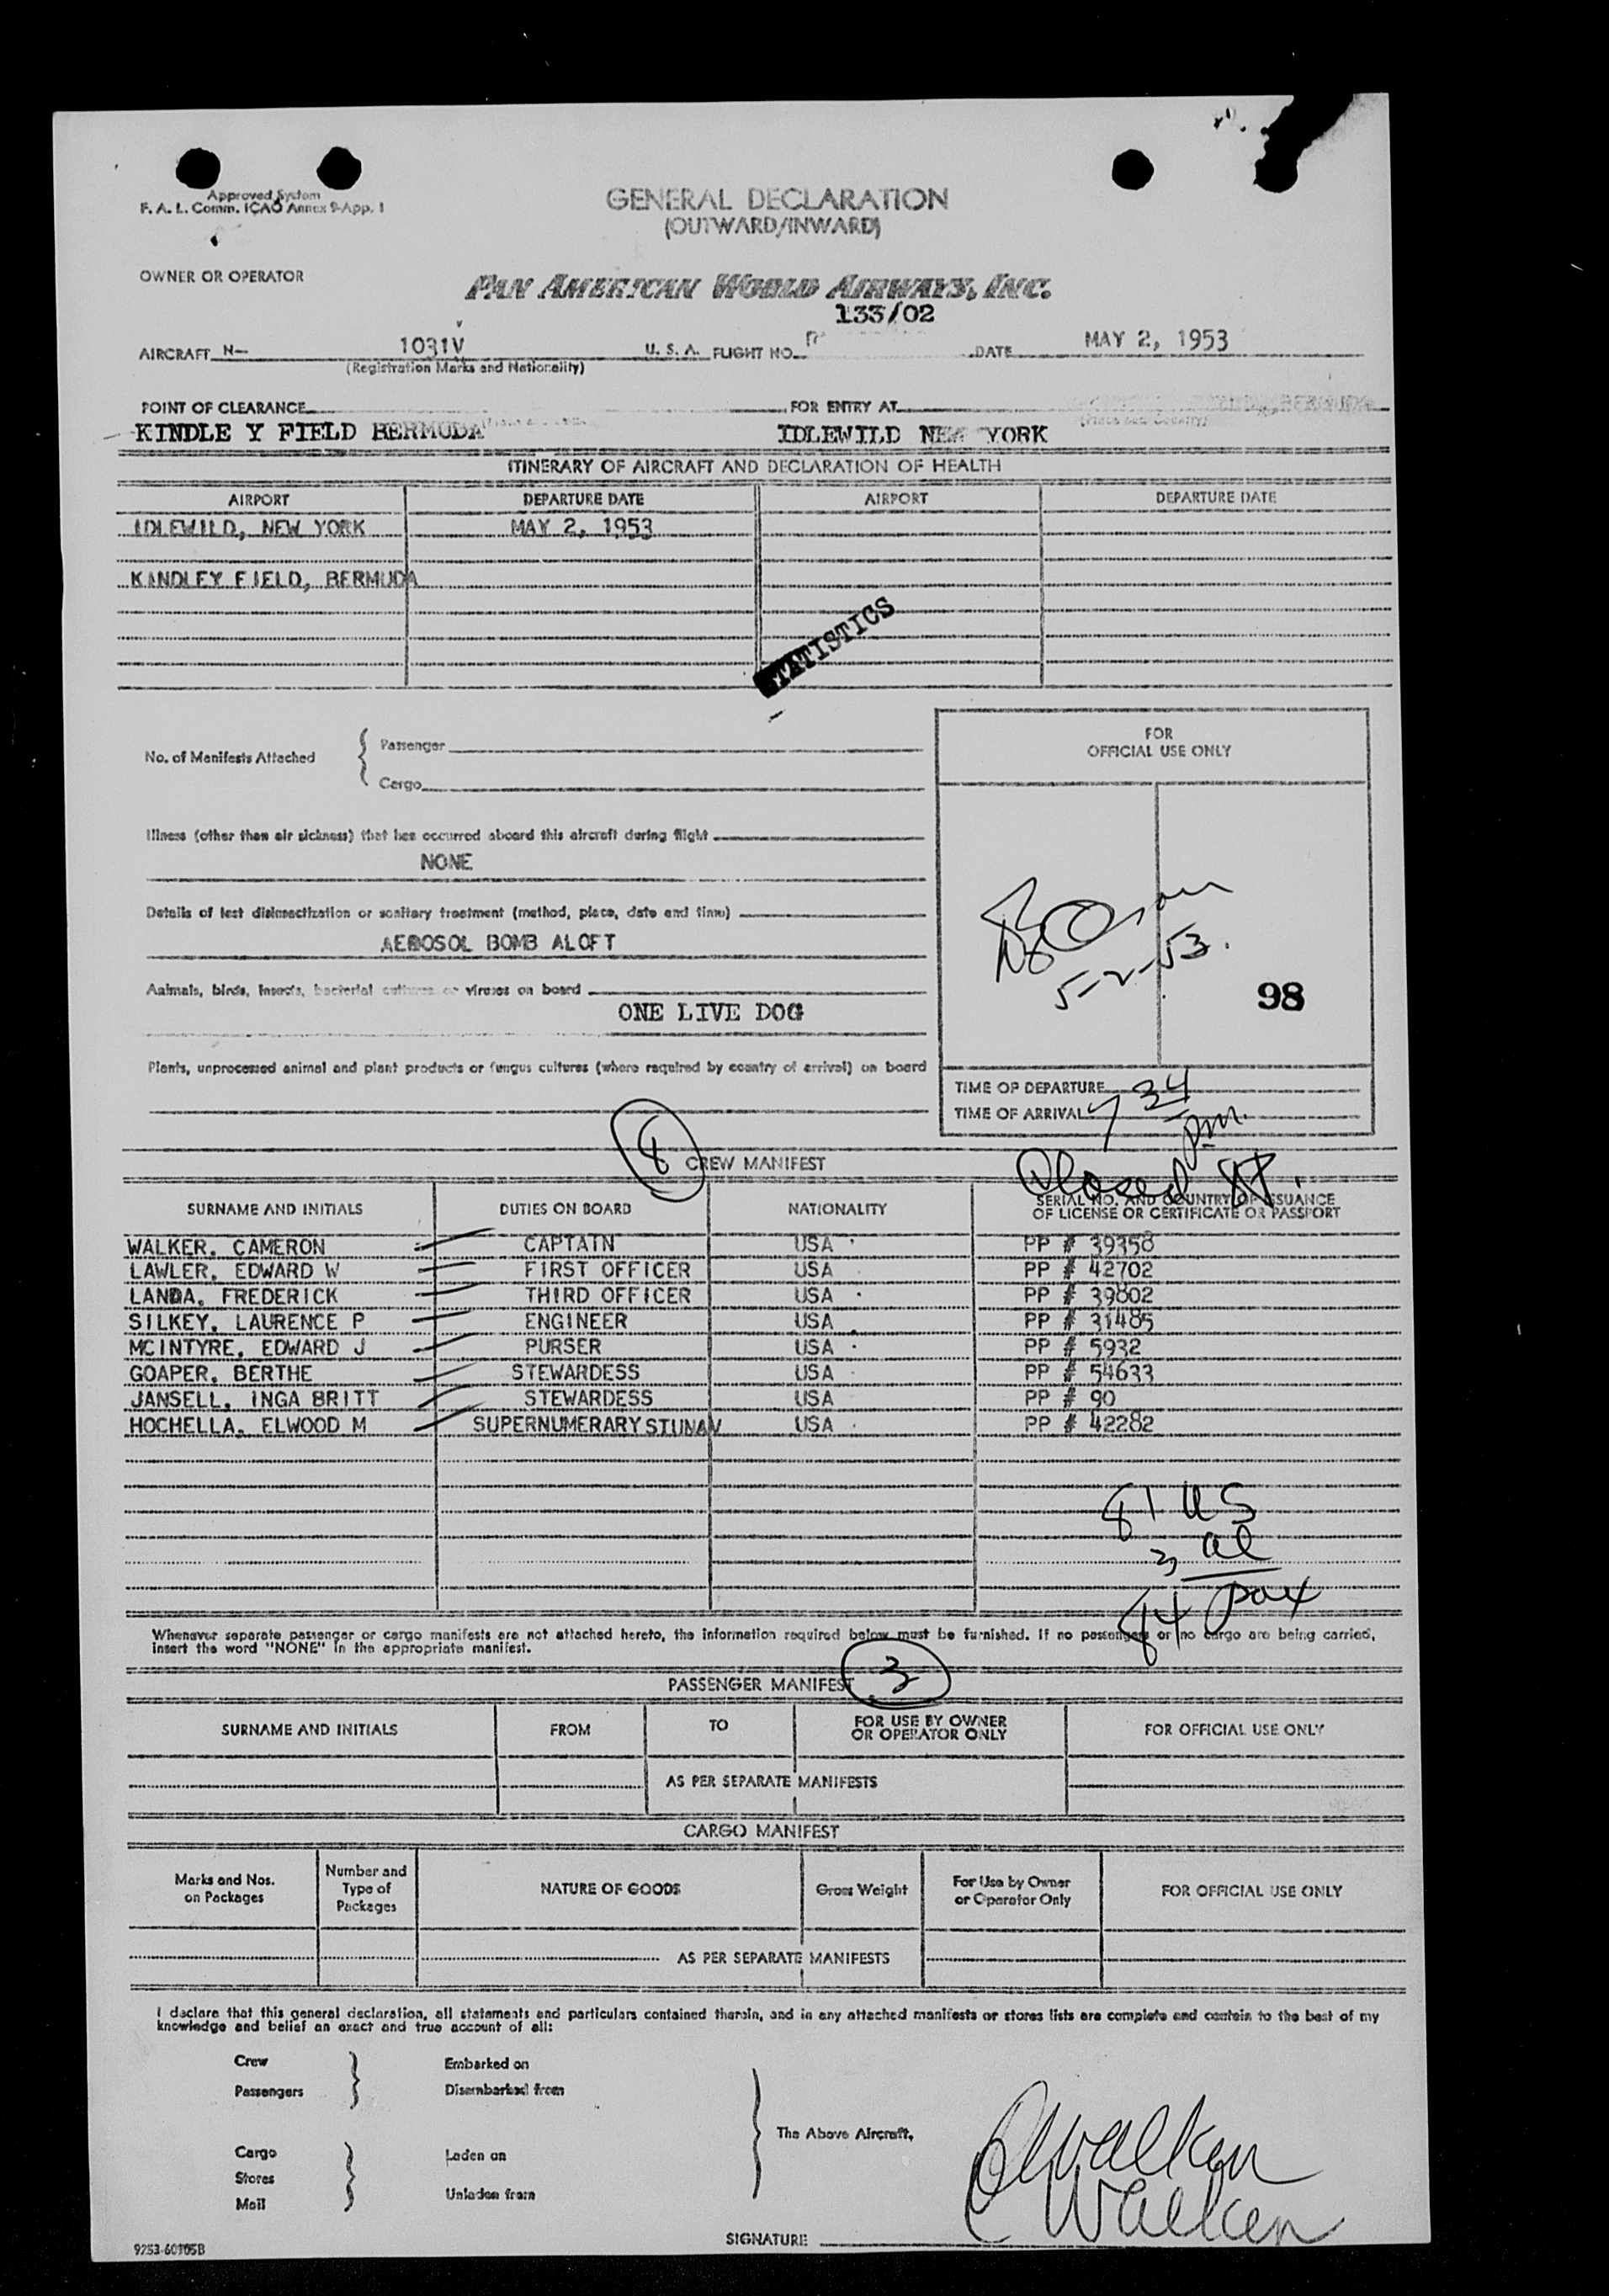 Approved System
F. A. L. Comm. ICAO Annex 9-App. 1
GENERAL DECLARATION
(OUTWARD/INWARD)
OWNER OR OPERATOR
PAN AMERICAN WORLD AIRWAYS, INC.
133/02
AIRCRAFT N- 1031V U. S. A. FLIGHT NO. DATE MAY 2, 1953
(Registration Marks and Nationality)
POINT OF CLEARANCE FOR ENTRY AT
(Place and Country)
KINDLE Y FIELD BERMUDA IDLEWILD NEW YORK
ITINERARY OF AIRCRAFT AND DECLARATION OF HEALTH
AIRPORT DEPARTURE DATE AIRPORT DEPARTURE DATE
IDLEWILD, NEW YORK MAY 2, 1953
KINDLEY FIELD, BERMUDA
STATISTICS
FOR
OFFICIAL USE ONLY
No. of Manifests Attached
Passenger
Cargo
Illness (other than air sickness) that has occurred aboard this aircraft during flight
NONE
Details of last disinsectization or sanitary treatment (method, place, date and time)
AEROSOL BOMB ALOFT
5-2-53.
Animals, birds, insects, bacterial cultures or viruses on board
98
ONE LIVE DOG
Plants, unprocessed animal and plant products or fungus cultures (where required by country of arrival) on board
TIME OF DEPARTURE
TIME OF ARRIVAL 7 34 pm.
8
CREW MANIFEST
Closed
SURNAME AND INITIALS DUTIES ON BOARD NATIONALITY SERIAL NO. AND COUNTRY OF ISSUANCE
OF LICENSE OR CERTIFICATE OR PASSPORT
WALKER, CAMERON CAPTAIN USA PP # 39358
LAWLER, EDWARD W FIRST OFFICER USA PP # 42702
LANDA, FREDERICK THIRD OFFICER USA PP # 39802
SILKEY, LAURENCE P ENGINEER USA PP # 31485
MCINTYRE, EDWARD J PURSER USA PP # 5932
GOAPER, BERTHE STEWARDESS USA PP # 54633
JANSELL, INGA BRITT STEWARDESS USA PP # 90
HOCHELLA, ELWOOD M SUPERNUMERARY STUNAV USA PP # 42282
81 US
3 al
84 pax
Whenever separate passenger or cargo manifests are not attached hereto, the information required below must be furnished. If no passengers or no cargo are being carried,
insert the word "NONE" in the appropriate manifest.
PASSENGER MANIFEST
3
SURNAME AND INITIALS FROM TO FOR USE BY OWNER
OR OPERATOR ONLY FOR OFFICIAL USE ONLY
AS PER SEPARATE MANIFESTS
CARGO MANIFEST
Marks and Nos.
on Packages Number and
Type of
Packages NATURE OF GOODS Gross Weight For Use by Owner
or Operator Only FOR OFFICIAL USE ONLY
AS PER SEPARATE MANIFESTS
I declare that this general declaration, all statements and particulars contained therein, and in any attached manifests or stores lists are complete and contain to the best of my
knowledge and belief an exact and true account of all:
Crew Embarked on
Passengers Disembarked from
The Above Aircraft.
Cargo Laden on
Stores
Mail Unladen from
C Walker
C Walker
SIGNATURE
9253-60105B